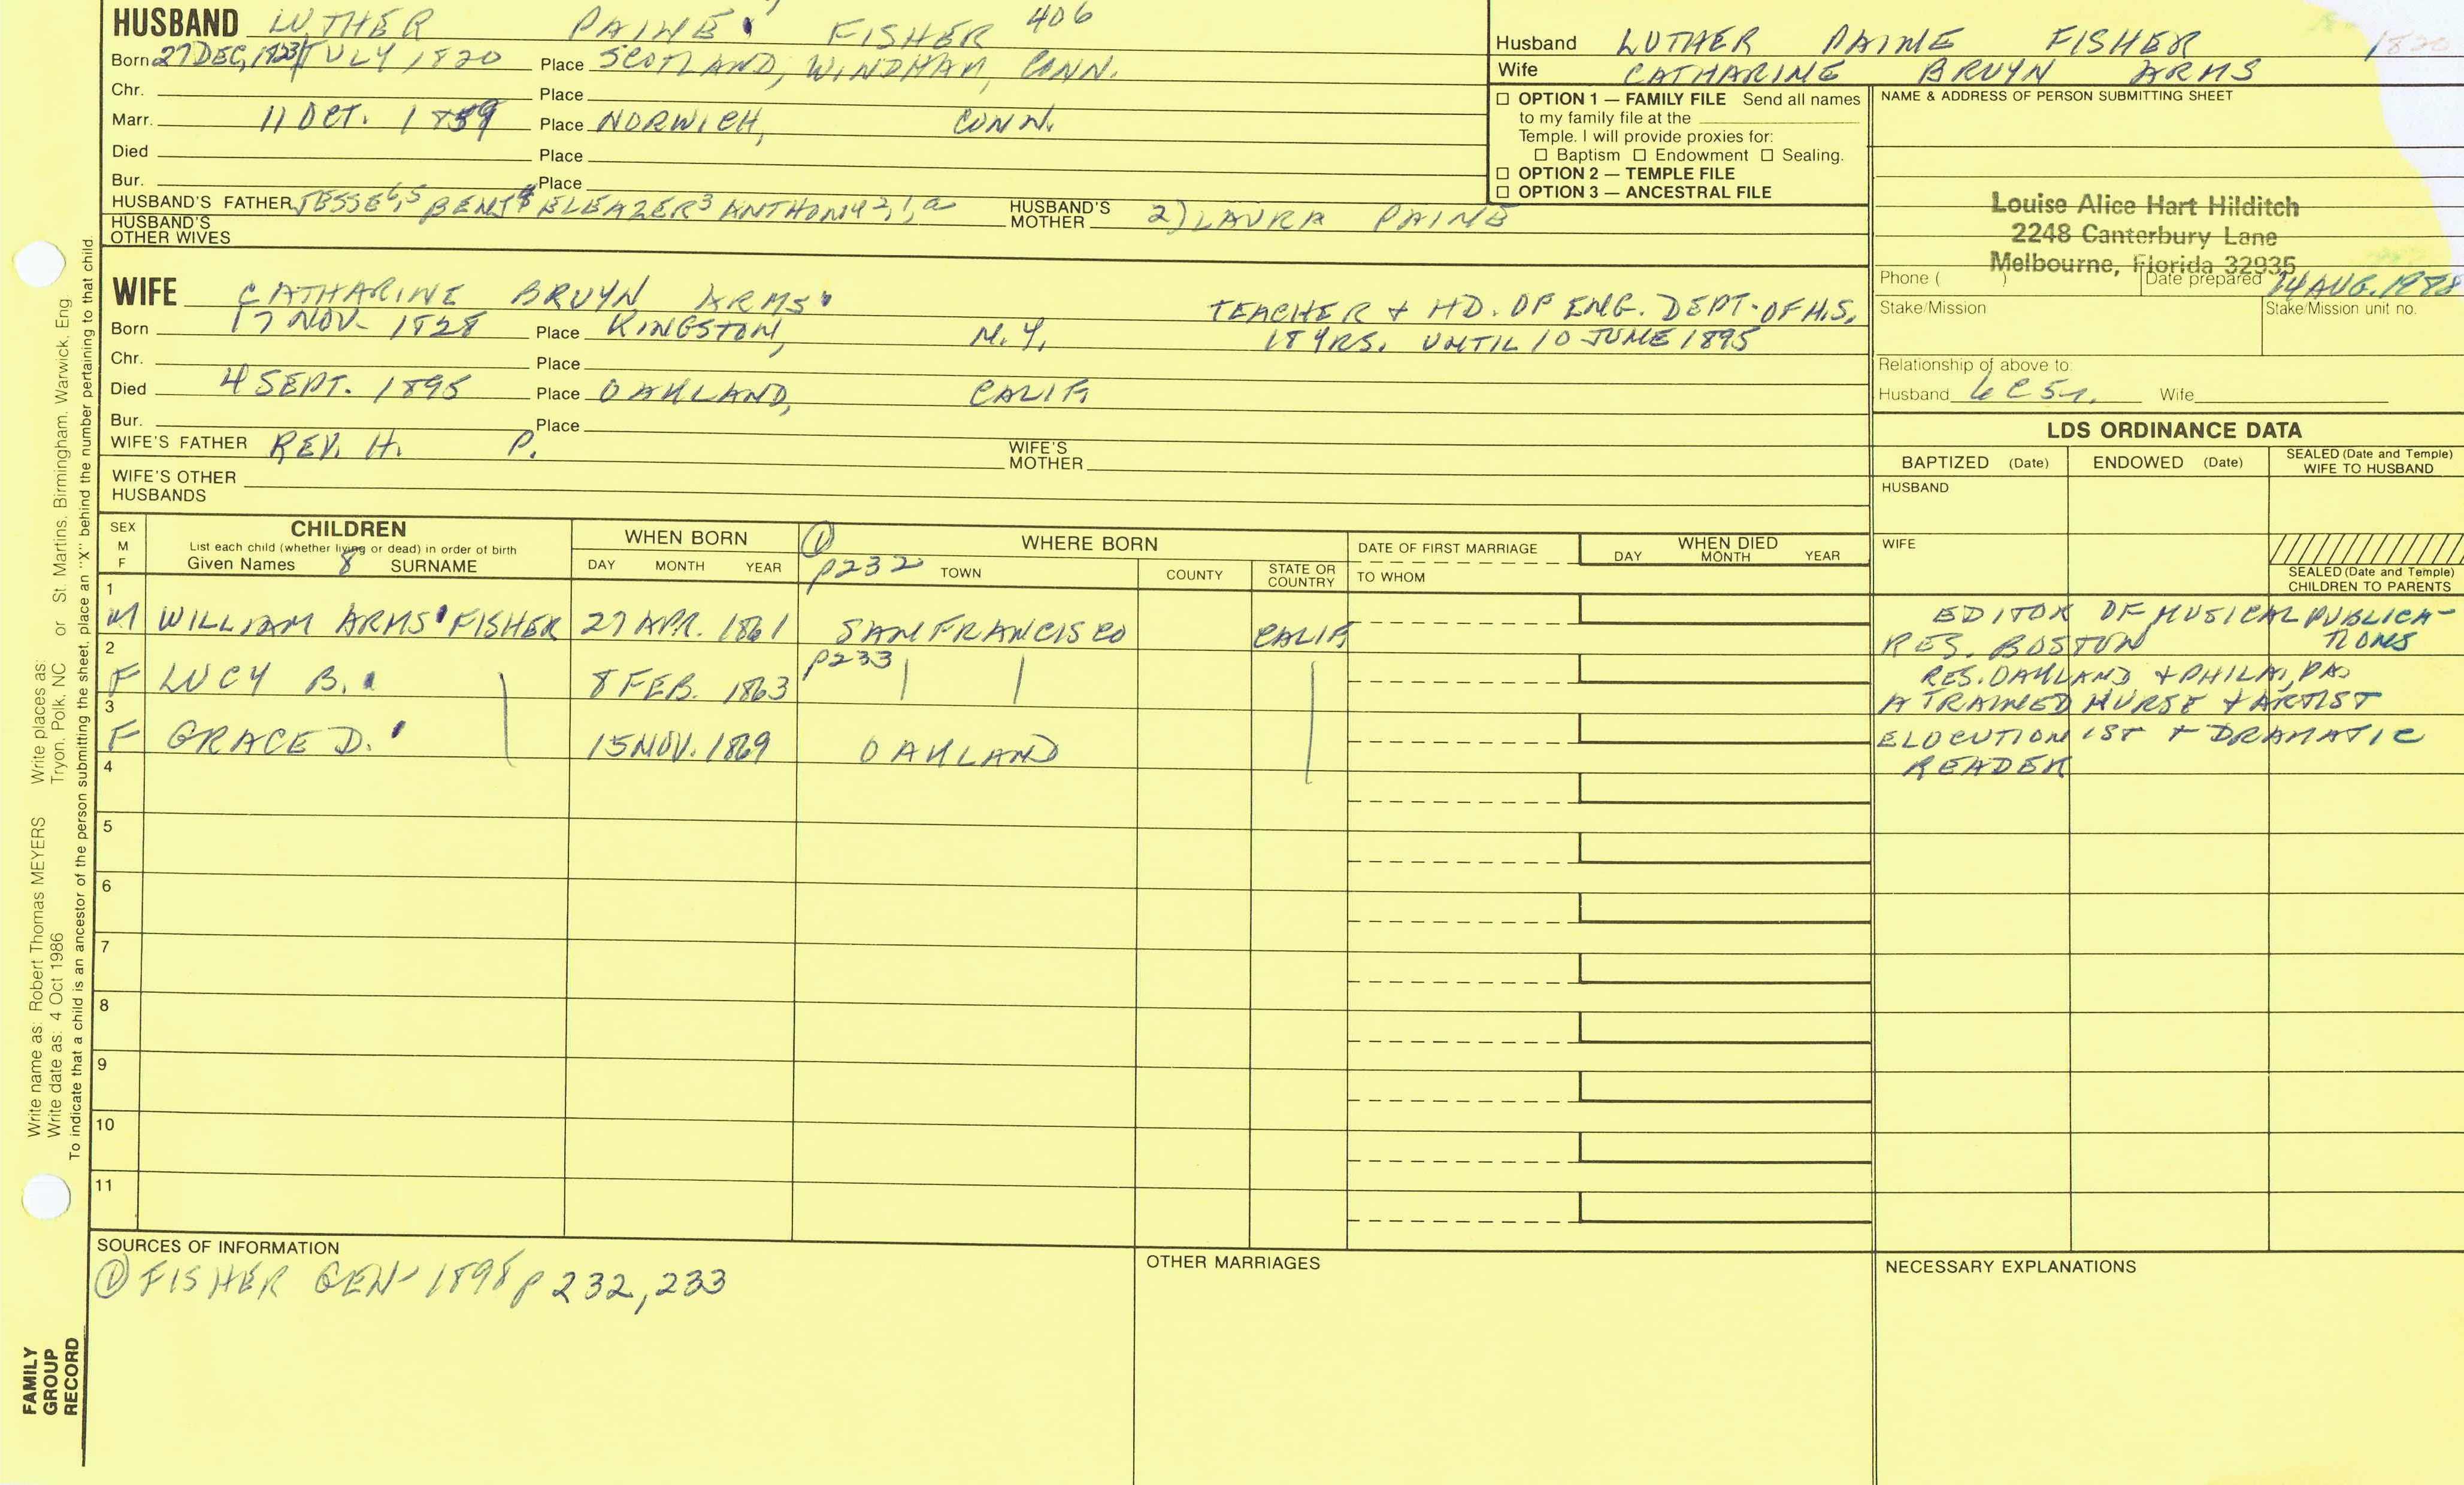 HUSBAND LUTHER PAINE FISHER 406
Born 27 DEC, 1823/JULY 1820 Place SCOTLAND, WINDHAM, CONN.
Chr. Place
Marr. 11 OCT. 1859 Place NORWICH, CONN.
Died Place
Bur. Place
HUSBAND'S FATHER JESSE6,5 BENJ4 ELEAZER3 ANTHONY2,1,a HUSBAND'S MOTHER 2) LAURA PAINE
HUSBAND'S OTHER WIVES
Husband LUTHER PAINE FISHER 1820
Wife CATHARINE BRUYN ARMS
☐ OPTION 1 — FAMILY FILE Send all names
to my family file at the
Temple. I will provide proxies for:
☐ Baptism ☐ Endowment ☐ Sealing.
☐ OPTION 2 — TEMPLE FILE
☐ OPTION 3 — ANCESTRAL FILE
NAME & ADDRESS OF PERSON SUBMITTING SHEET
Louise Alice Hart Hilditch
2248 Canterbury Lane
Melbourne, Florida 32935
Phone ( ) Date prepared 14 AUG. 1988
Stake/Mission Stake/Mission unit no.
Relationship of above to:
Husband 6C5r. Wife
WIFE CATHARINE BRUYN ARMS
Born 17 NOV. 1828 Place KINGSTON, N.Y.
TEACHER + HD. OF ENG. DEPT. OF H.S.
18 YRS. UNTIL 10 JUNE 1895
Chr. Place
Died 4 SEPT. 1895 Place OAKLAND, CALIF.
Bur. Place
WIFE'S FATHER REV. H. P. WIFE'S MOTHER
WIFE'S OTHER
HUSBANDS
LDS ORDINANCE DATA
BAPTIZED (Date) ENDOWED (Date) SEALED (Date and Temple) WIFE TO HUSBAND
HUSBAND
WIFE
SEALED (Date and Temple) CHILDREN TO PARENTS
SEX M F CHILDREN
List each child (whether living or dead) in order of birth
Given Names 8 SURNAME
WHEN BORN
DAY MONTH YEAR
① WHERE BORN
p232 TOWN COUNTY STATE OR COUNTRY
DATE OF FIRST MARRIAGE
TO WHOM
WHEN DIED
DAY MONTH YEAR
1
M WILLIAM ARMS FISHER 27 APR. 1861 SAN FRANCISCO CALIF. EDITOR OF MUSICAL PUBLICA-
RES. BOSTON TIONS
2 p233
F LUCY B. 8 FEB. 1863 RES. OAKLAND + PHILA., PA.
A TRAINED NURSE + ARTIST
3
F GRACE D. 15 NOV. 1869 OAKLAND ELOCUTIONIST + DRAMATIC
READER
4
5
6
7
8
9
10
11
SOURCES OF INFORMATION
① FISHER GEN- 1898 p 232, 233
OTHER MARRIAGES
NECESSARY EXPLANATIONS
Write name as: Robert Thomas MEYERS Write places as: Tryon, Polk, NC or St. Martins, Birmingham, Warwick, Eng
Write date as: 4 Oct 1986
To indicate that a child is an ancestor of the person submitting the sheet, place an "X" behind the number pertaining to that child.
FAMILY
GROUP
RECORD